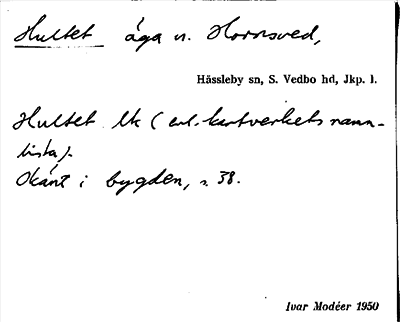 Hultet äga n. Hornsved,
Hässleby sn, S. Vedbo hd, Jkp. l.
Hultet lk (enl. kartverkets namn-
lista).
Okänt i bygden, s. 38.
Ivar Modéer 1950